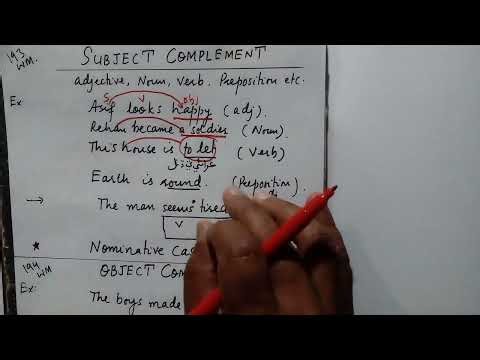 193 WM.
SUBJECT COMPLEMENT
adjective, Noun, Verb. Preposition etc.
Ex:
S V obj
Asif looks happy (adj)
Rehan became a soldier (Noun)
This house is to let (Verb)
Earth is round. (Preposition)
→ The man seems tired
V
★ Nominative Cas
194 WM
OBJECT COM
Ex:
The boys made